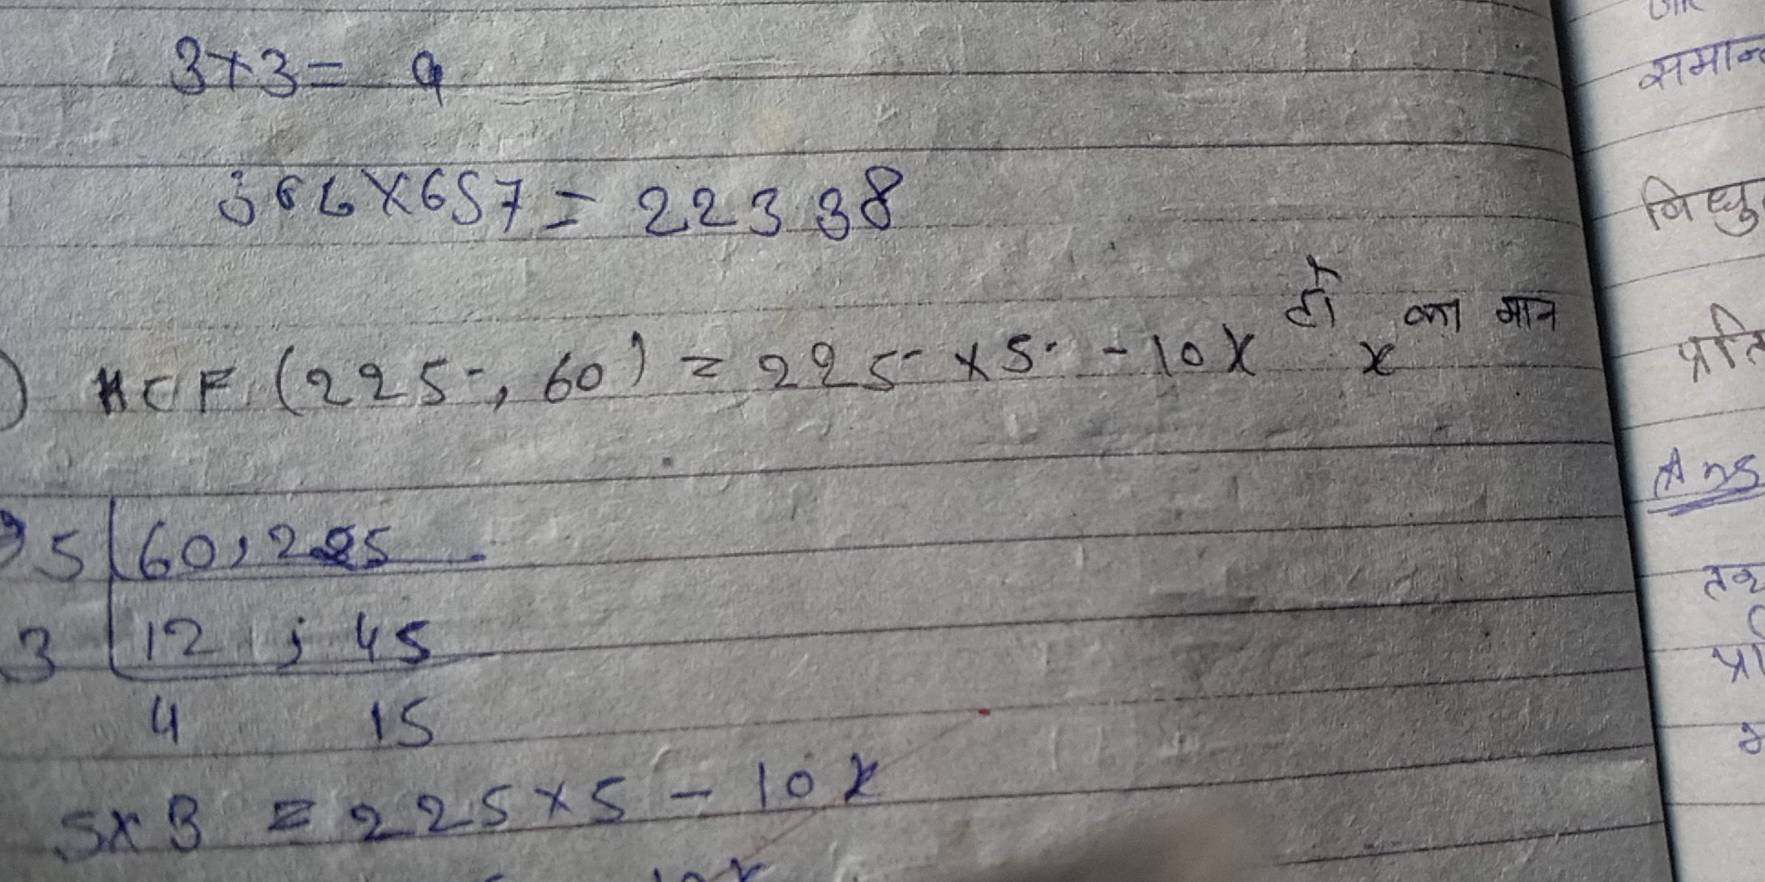 3+3= 9
306×657 = 22338
HCF (225, 60) = 225 × 5 - 10x हो x का मान
5 60, 225
3 12, 45
4 15
5×3 = 225×5 - 10x
समान
विधु
प्रति
Ans